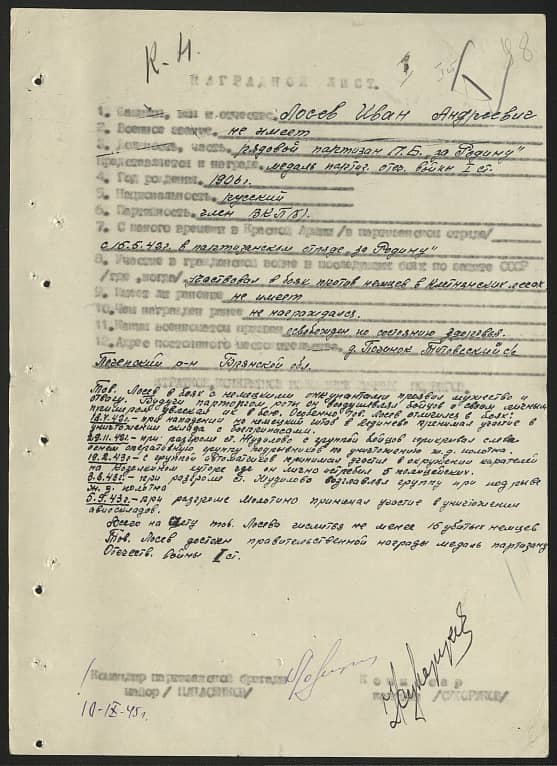 К-Н.
88
НАГРАДНОЙ ЛИСТ.
1. Фамилия, имя и отчество Лосев Иван Андреевич
2. Военное звание, не имеет
3. Должность, часть рядовой партизан П.Б. "за Родину"
Представляется к награде медаль партиз. отеч. войны I ст.
4. Год рождения, 1906 г.
5. Национальность, русский
6. Партийность, член ВКП(б).
7. С какого времени в Красной Армии /в партизанском отряде/
с 16.5.43г. в партизанском отряде "за Родину"
8. Участие в гражданской войне и последующих боях по защите СССР
/где, когда/ участвовал в боях против немцев в Клетнянских лесах
9. Имеет ли ранения не имеет
10. Чем награжден ранее не награждался.
11. Каким военкоматом призван освобожден по состоянию здоровья.
12. Адрес постоянного местожительства, д. Починок Тютевский с/с
Почепский р-н Брянской обл.
Тов. Лосев в боях с немецкими оккупантами проявил мужество и
отвагу. Будучи парторгом роты он воодушевлял бойцов и своим личным
примером увлекая их в бою. Особенно тов. Лосев отличился в боях:
при нападении на немецкий штаб в принимал участие в
уничтожении склада с боеприпасами.
29.11.42г.- при разгроме ст. Жудилово с группой бойцов прикрывал слева
огнем оперативную группу подрывников по уничтожению ж.д. полотна.
18.2.43г.- с группой автоматчиков принимал участие в окружении карателей
на хуторе где он лично истребил 5 полицейских.
3.3.43г.- при разгроме ст. Жудилово возглавлял группу при подрыве
ж.д. полотна
5.5.43г.- при разгроме Молотино принимал участие в уничтожении
авиоскладов.
Всего на счету тов. Лосева числится не менее 15 убитых немцев
Тов. Лосев достоин правительственной награды медаль партизану
Отечеств. войны I ст.
Командир партизанской бригады
майор
Комиссар
/СУХОРУКОВ/
10-IX-43г.